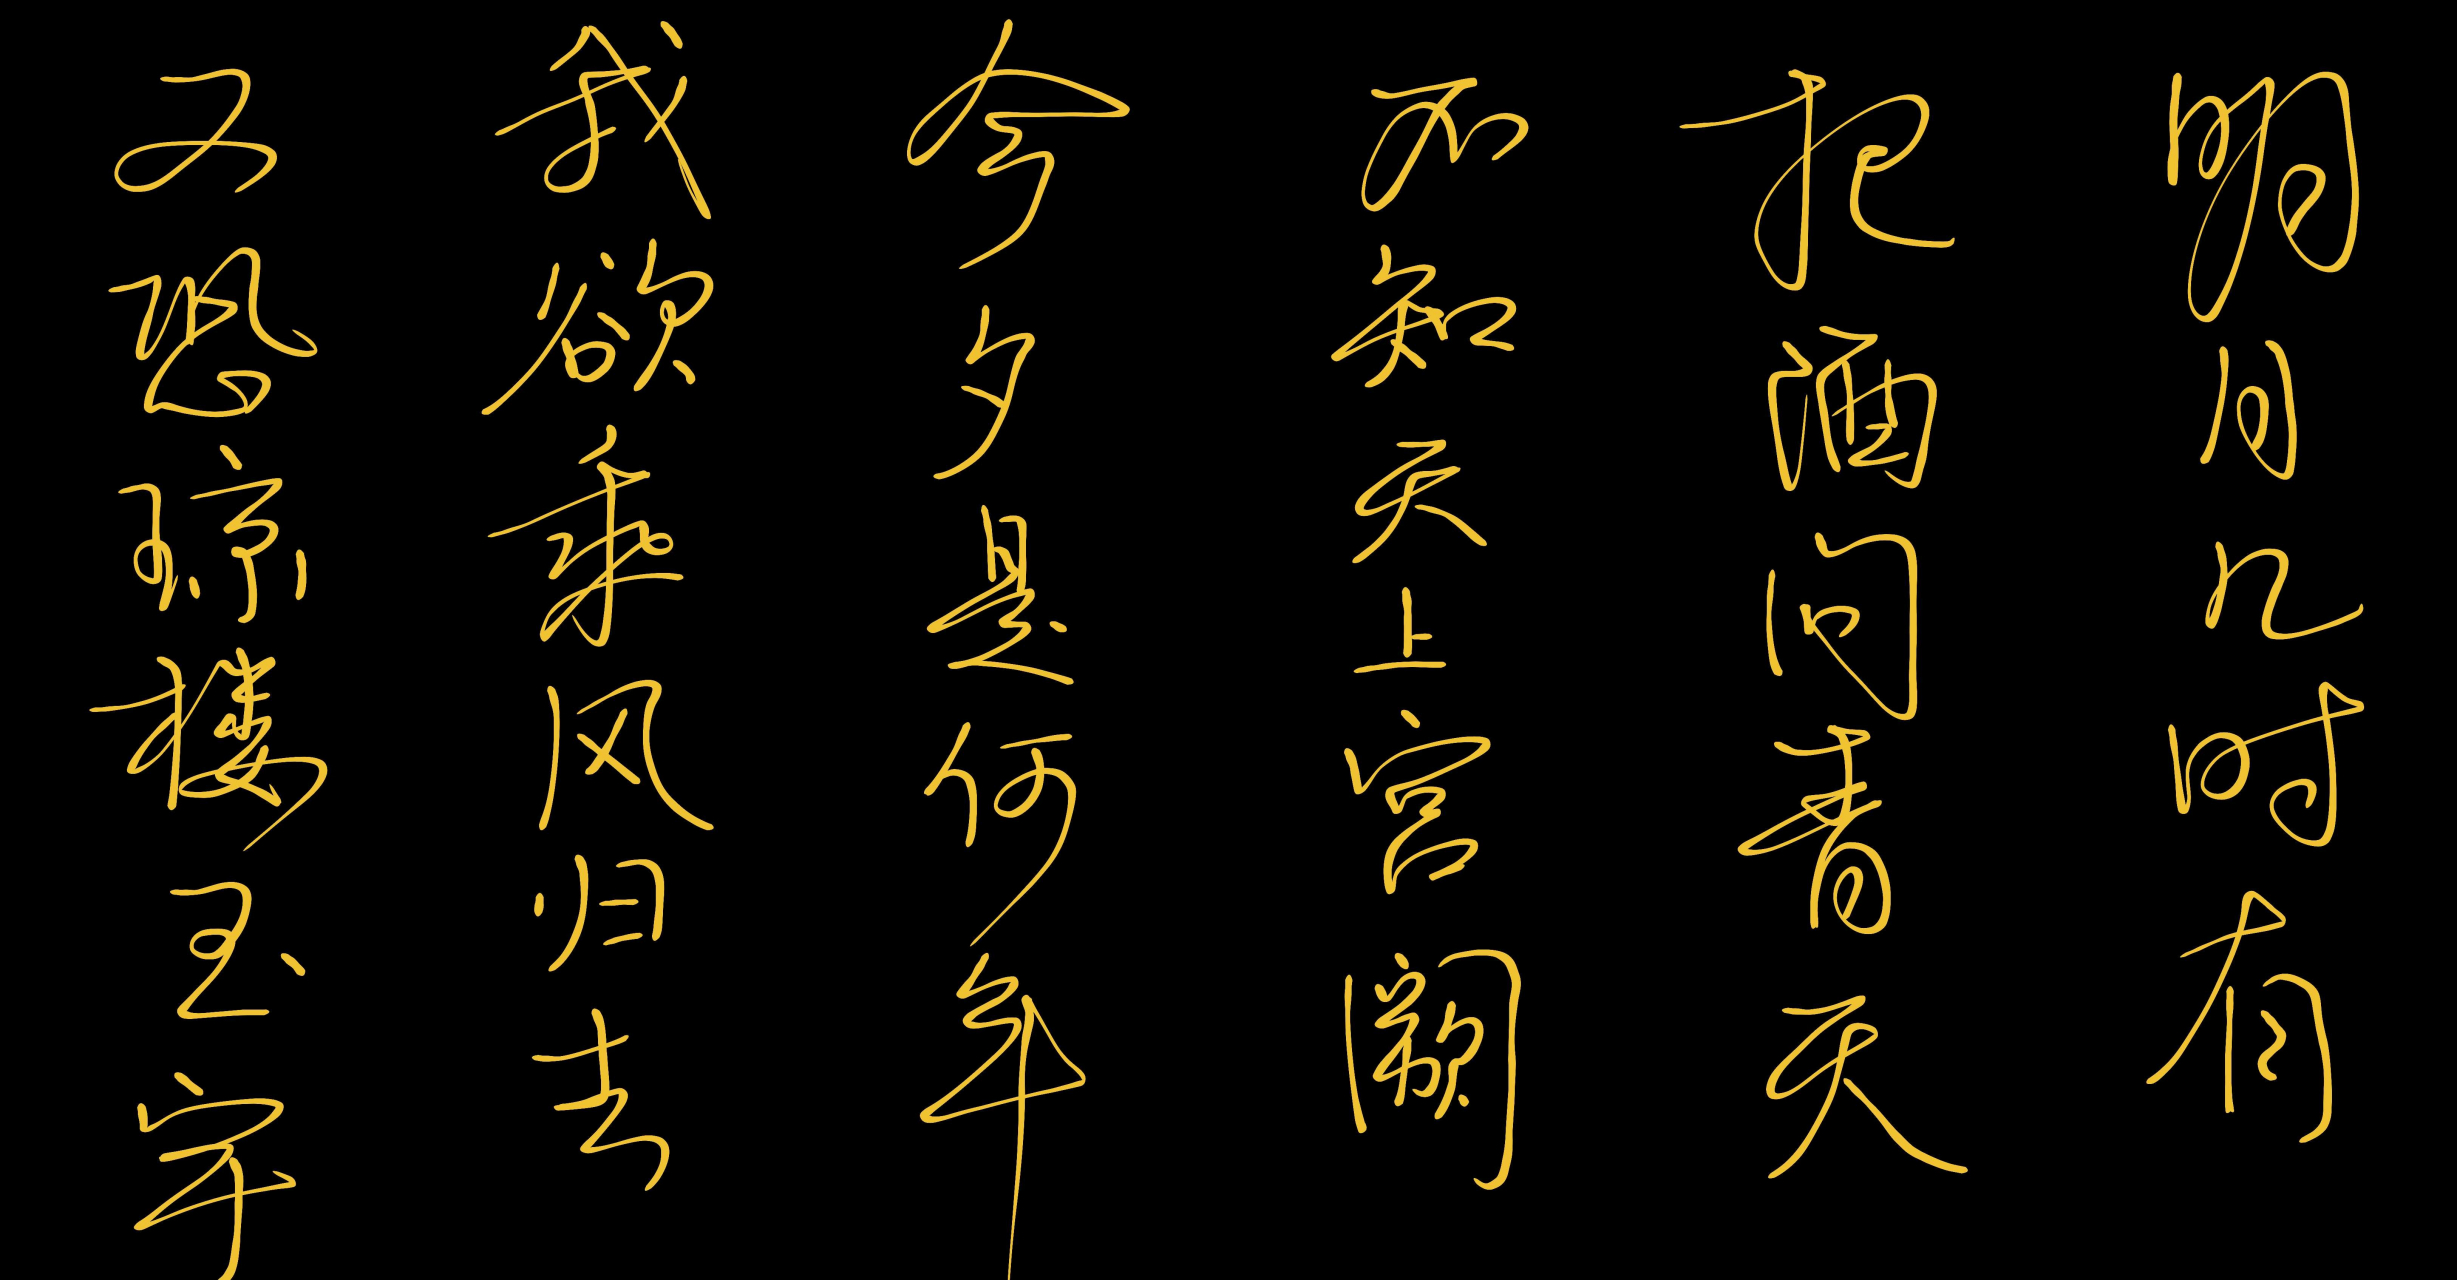 明月几时有
把酒问青天
不知天上宫阙
今夕是何年
我欲乘风归去
又恐琼楼玉宇